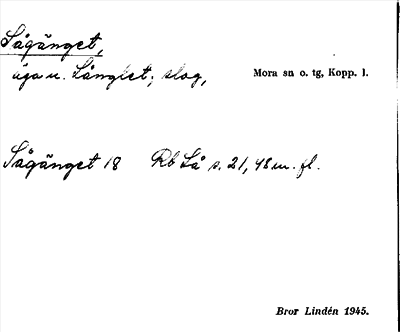 Sågänget,
äga u. Långlet; slog, Mora sn o. tg, Kopp. l.
Sågänget 18 Rb Lå s. 21, 48 m. fl.
Bror Lindén 1945.